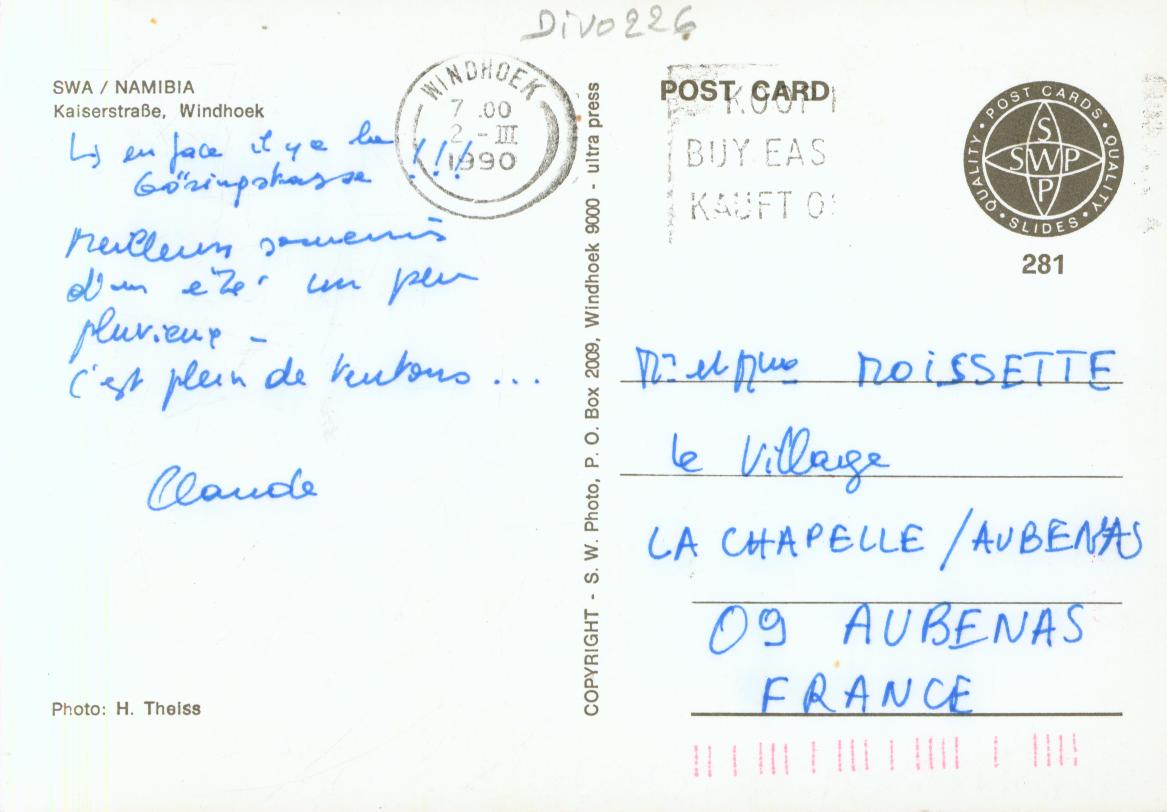 Divo226
SWA / NAMIBIA
Kaiserstraße, Windhoek
↳ en face il y a la
Göringstrasse !!!
Meilleurs souvenirs
d'un été un peu
pluvieux -
C'est plein de teutons ...
Claude
Photo: H. Theiss
WINDHOEK
7 .00
2 - III
1990
COPYRIGHT - S. W. Photo, P. O. Box 2009, Windhoek 9000 - ultra press
POST CARD
KOOP
BUY EAS
KAUFT O
QUALITY • POST CARDS • QUALITY • SLIDES •
SWP
SWP
281
Mr et Mme MOISSETTE
Le Village
LA CHAPELLE /AUBENAS
09 AUBENAS
FRANCE